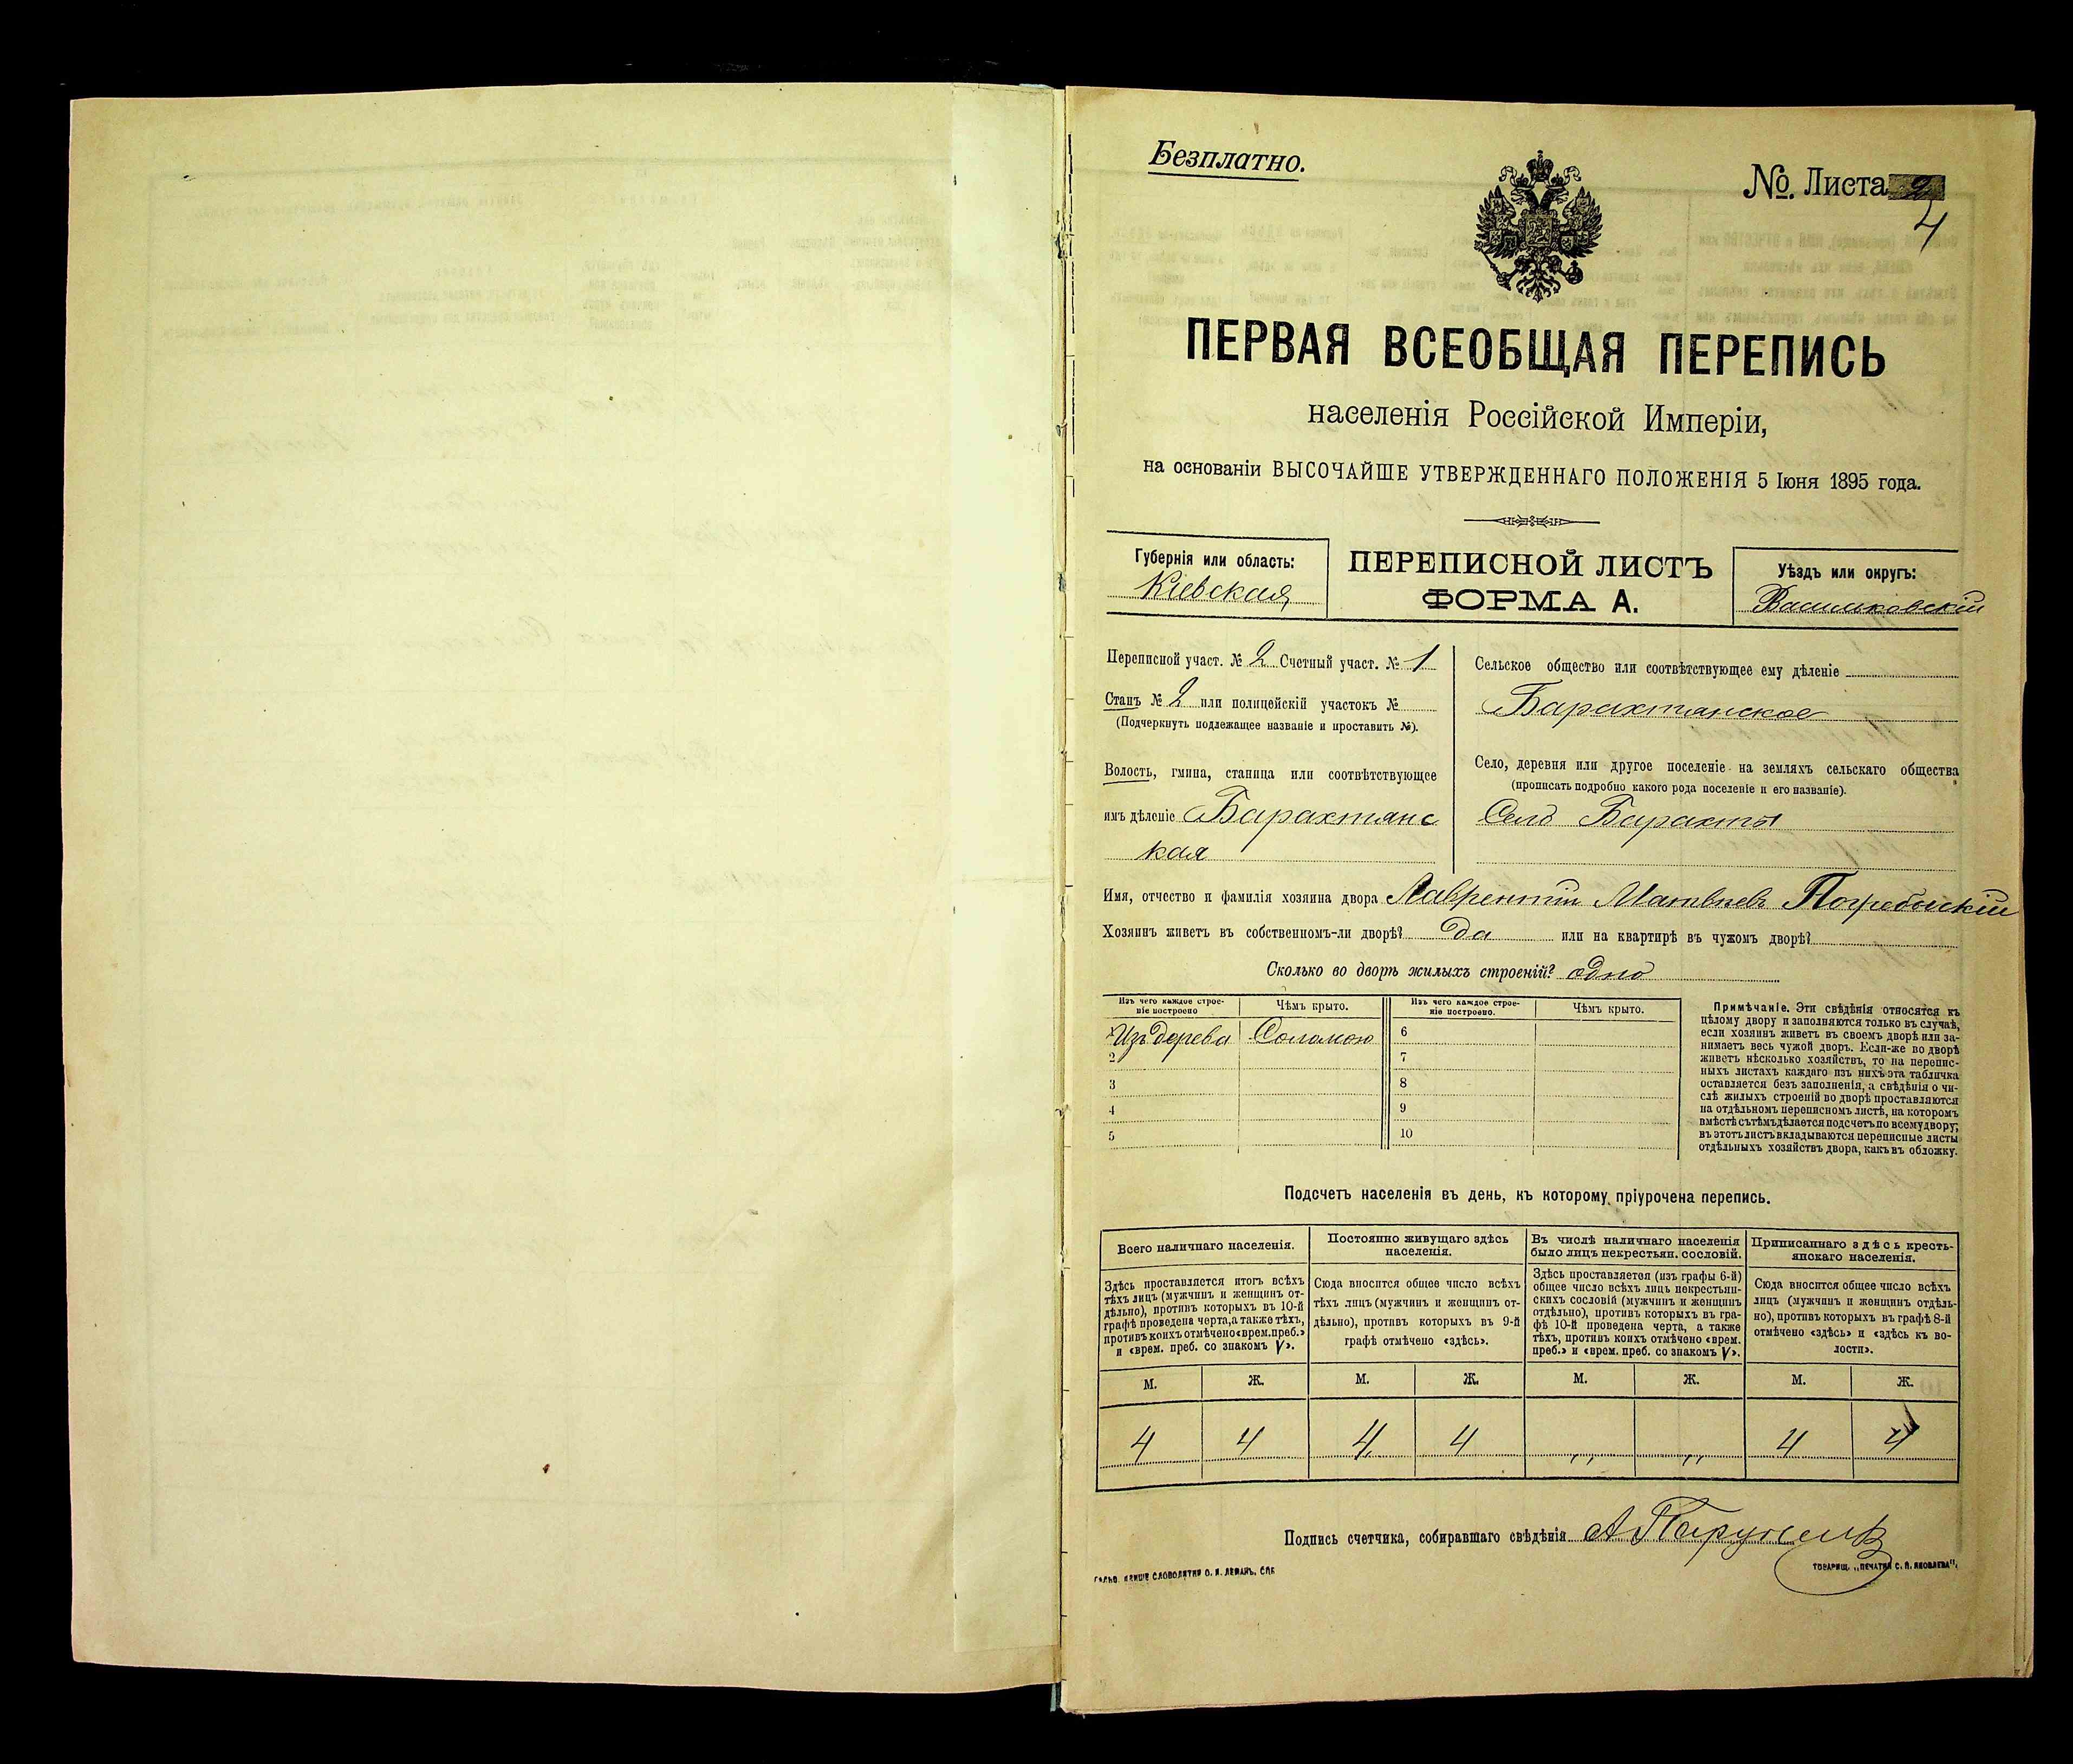 Безплатно.
№ Листа 2
4
ПЕРВАЯ ВСЕОБЩАЯ ПЕРЕПИСЬ
населенія Россійской Имперіи,
на основаніи ВЫСОЧАЙШЕ УТВЕРЖДЕННАГО ПОЛОЖЕНІЯ 5 Іюня 1895 года.
Губернія или область:
Кіевская
ПЕРЕПИСНОЙ ЛИСТЪ
ФОРМА А.
Уѣздъ или округъ:
Васильковскій
Переписной участ. № 2 Счетный участ. № 1
Станъ № 2 или полицейскій участокъ №
(Подчеркнуть подлежащее названіе и проставить №).
Волость, гмина, станица или соотвѣтствующее
имъ дѣленіе Барахтянс
кая
Сельское общество или соотвѣтствующее ему дѣленіе
Барахтянское
Село, деревня или другое поселеніе на земляхъ сельскаго общества
(прописать подробно какого рода поселеніе и его названіе).
Село Барахты
Имя, отчество и фамилія хозяина двора Лаврентій Матвѣевъ Погребыскій
Хозяинъ живетъ въ собственномъ-ли дворѣ? да или на квартирѣ въ чужомъ дворѣ?
Сколько во дворѣ жилыхъ строеній? одно
Изъ чего каждое строе-
ніе построено
Чѣмъ крыто.
Изъ чего каждое строе-
ніе построено.
Чѣмъ крыто.
Изъ дерева Соломою 6
2 7
3 8
4 9
5 10
Примѣчаніе. Эти свѣдѣнія относятся къ
цѣлому двору и заполняются только въ случаѣ,
если хозяинъ живетъ въ своемъ дворѣ или за-
нимаетъ весь чужой дворъ. Если-же во дворѣ
живетъ нѣсколько хозяйствъ, то на перепис-
ныхъ листахъ каждаго изъ нихъ эта табличка
оставляется безъ заполненія, а свѣдѣнія о чи-
слѣ жилыхъ строеній во дворѣ проставляются
на отдѣльномъ переписномъ листѣ, на которомъ
вмѣстѣ съ тѣмъ дѣлается подсчетъ по всему двору;
въ этотъ листъ вкладываются переписные листы
отдѣльныхъ хозяйствъ двора, какъ въ обложку.
Подсчетъ населенія въ день, къ которому пріурочена перепись.
Всего наличнаго населенія.
Постоянно живущаго здѣсь
населенія.
Въ числѣ наличнаго населенія
было лицъ некрестьян. сословій.
Приписаннаго здѣсь кресть-
янскаго населенія.
Здѣсь проставляется итогъ всѣхъ
тѣхъ лицъ (мужчинъ и женщинъ от-
дѣльно), противъ которыхъ въ 10-й
графѣ проведена черта, а также тѣхъ,
противъ коихъ отмѣчено «врем. преб.»
и «врем. преб. со знакомъ V».
Сюда вносится общее число всѣхъ
тѣхъ лицъ (мужчинъ и женщинъ от-
дѣльно), противъ которыхъ въ 9-й
графѣ отмѣчено «здѣсь».
Здѣсь проставляется (изъ графы 6-й)
общее число всѣхъ лицъ некрестьян-
скихъ сословій (мужчинъ и женщинъ
отдѣльно), противъ которыхъ въ гра-
фѣ 10-й проведена черта, а также
тѣхъ, противъ коихъ отмѣчено «врем.
преб.» и «врем. преб. со знакомъ V».
Сюда вносится общее число всѣхъ
лицъ (мужчинъ и женщинъ отдѣль-
но), противъ которыхъ въ графѣ 8-й
отмѣчено «здѣсь» и «здѣсь къ во-
лости».
М. Ж. М. Ж. М. Ж. М. Ж.
4 4 4 4 " " 4 4
Подпись счетчика, собиравшаго свѣдѣнія
СЛОВОЛИТНИ О. И. ЛЕМАНЪ, СПБ
ТОВАРИЩ. „ПЕЧАТНЯ С. П. ЯКОВЛЕВА".